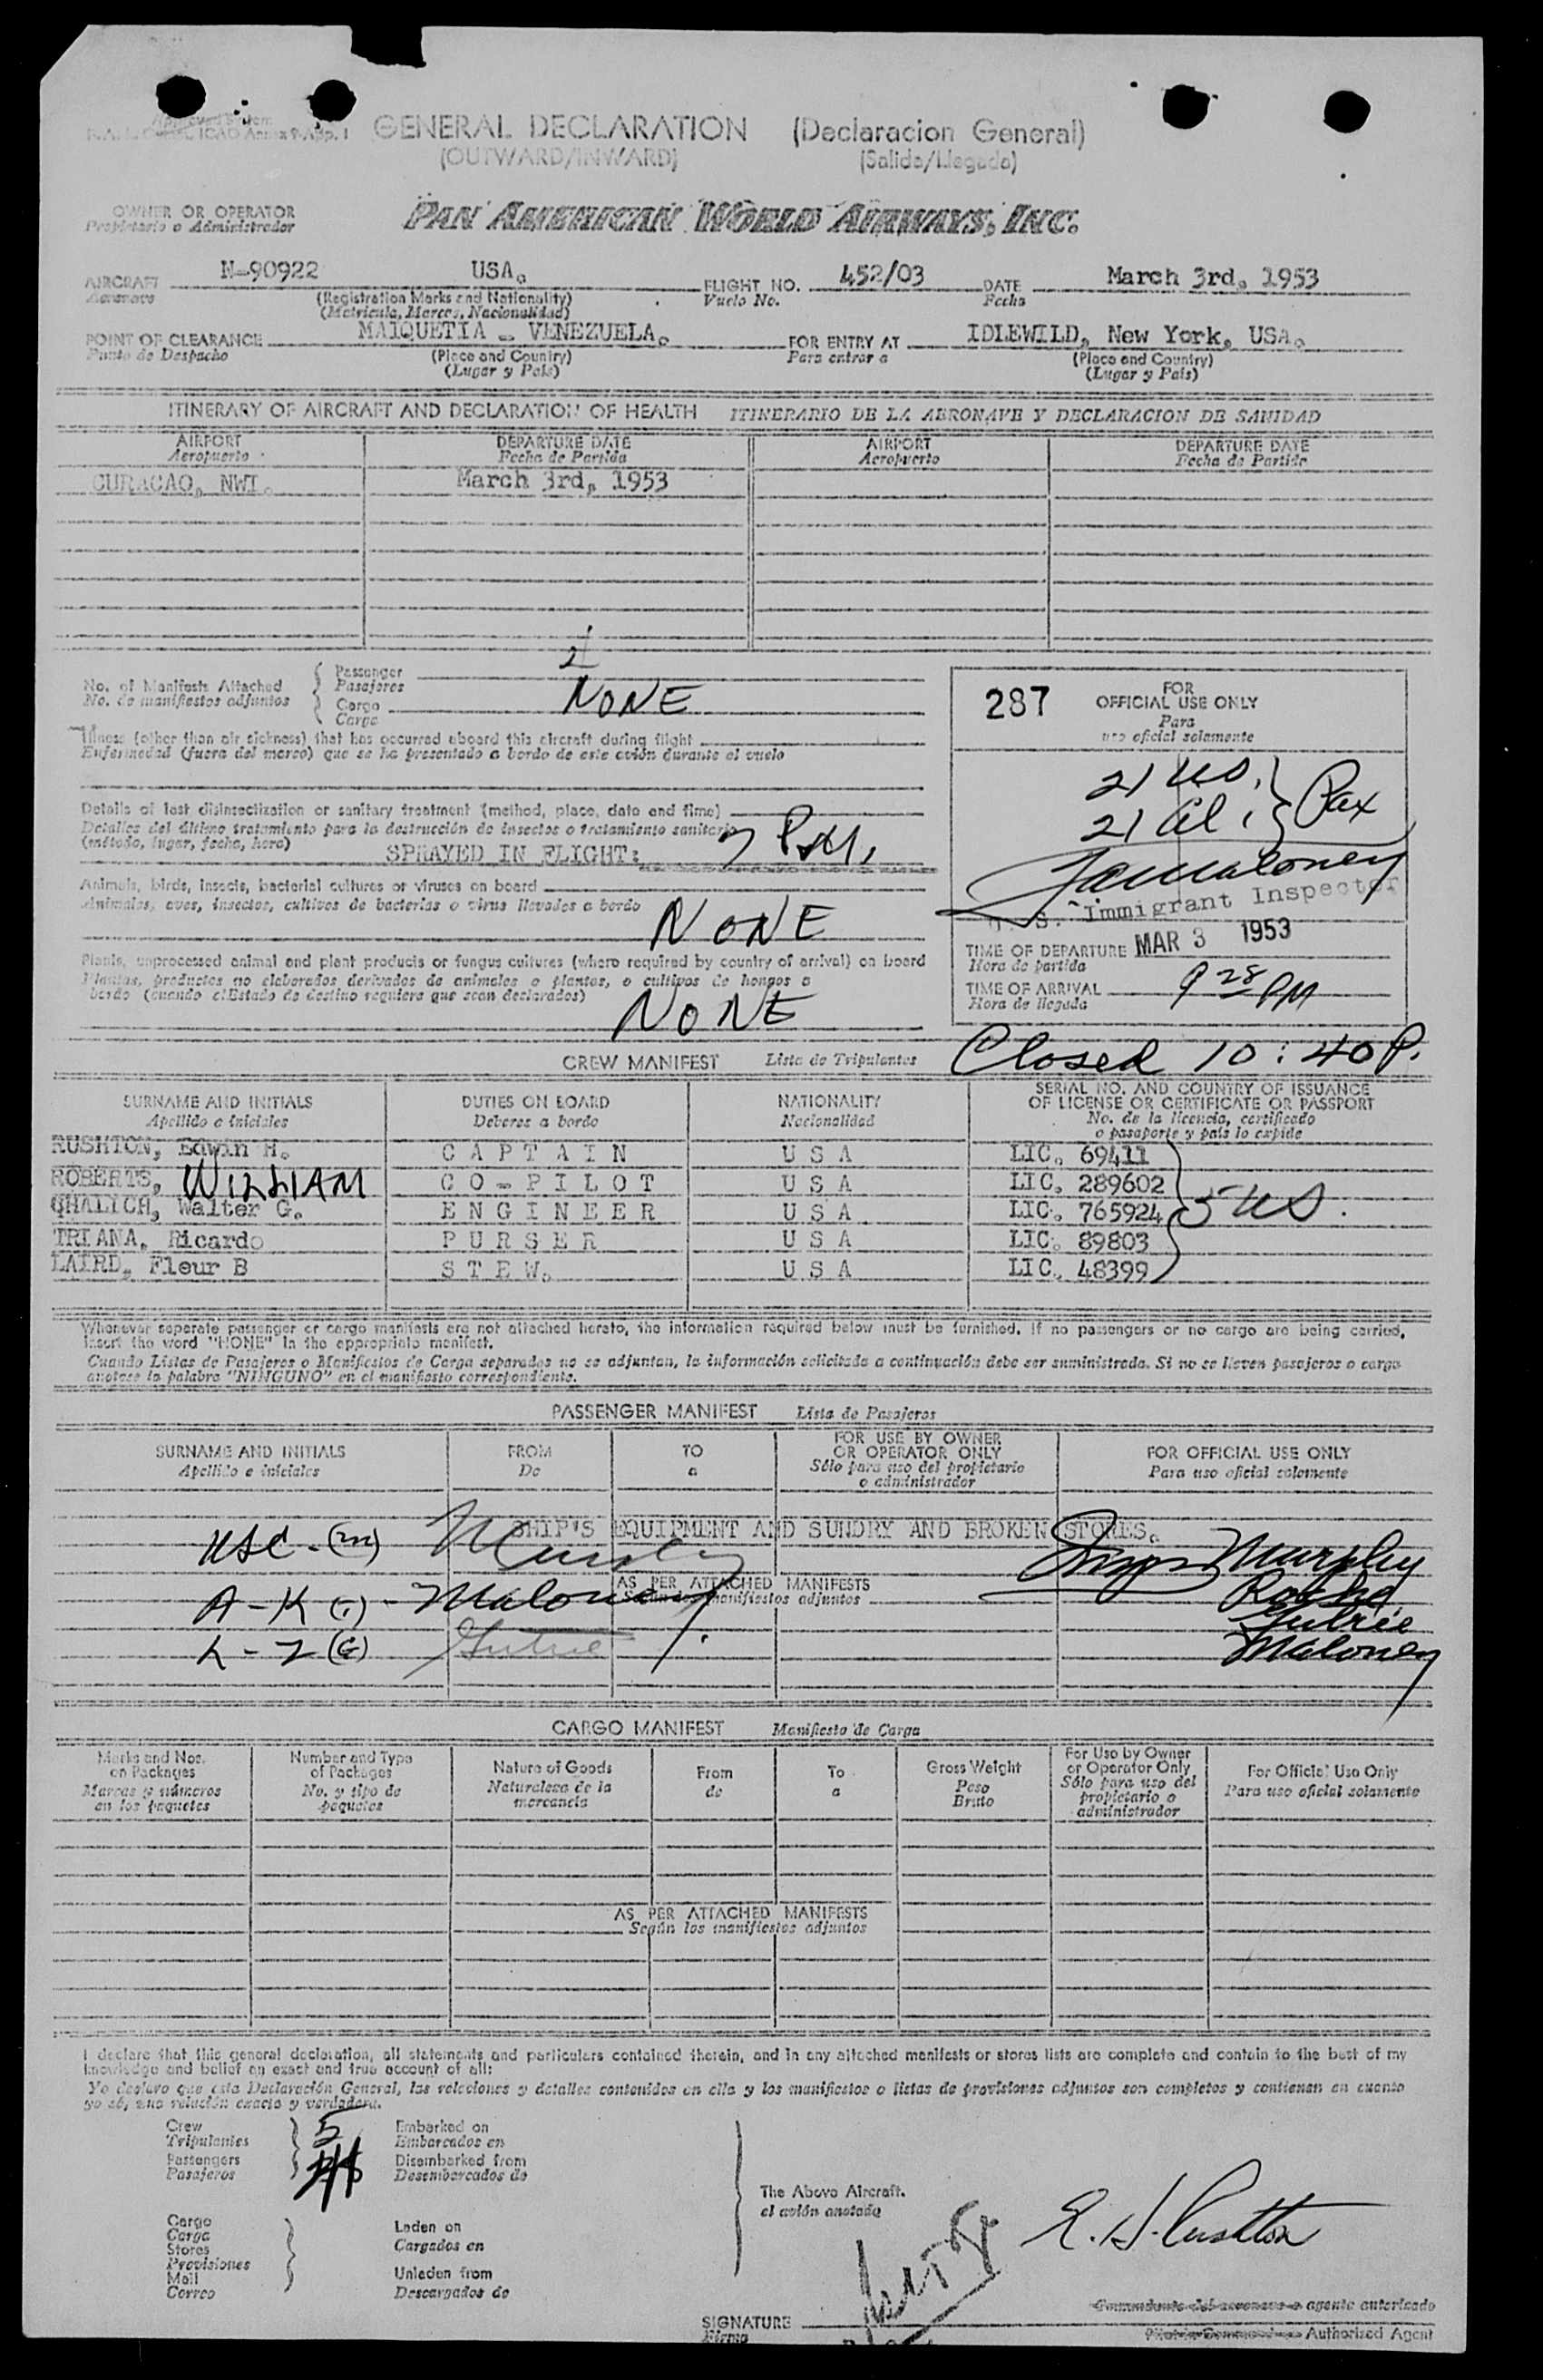 GENERAL DECLARATION (Declaracion General)
(OUTWARD/INWARD) (Salida/Llegada)
OWNER OR OPERATOR
Propietario o Administrador
PAN AMERICAN WORLD AIRWAYS, INC.
AIRCRAFT N-90922 USA. FLIGHT NO. 452/03 DATE March 3rd, 1953
Aeronave (Registration Marks and Nationality) Vuelo No. Fecha
(Matricula, Marcas, Nacionalidad)
POINT OF CLEARANCE MAIQUETIA - VENEZUELA. FOR ENTRY AT IDLEWILD, New York, USA.
Punto de Despacho (Place and Country) Para entrar a (Place and Country)
(Lugar y País) (Lugar y País)
ITINERARY OF AIRCRAFT AND DECLARATION OF HEALTH ITINERARIO DE LA AERONAVE Y DECLARACION DE SANIDAD
AIRPORT DEPARTURE DATE AIRPORT DEPARTURE DATE
Aeropuerto Fecha de Partida Aeropuerto Fecha de Partida
CURACAO, NWI. March 3rd, 1953
No. of Manifests Attached
No. de manifiestos adjuntos
Passenger 2
Pasajeros
Cargo NONE
Carga
Illness (other than air sickness) that has occurred aboard this aircraft during flight
Enfermedad (fuera del mareo) que se ha presentado a bordo de este avión durante el vuelo
Details of last disinsectization or sanitary treatment (method, place, date and time)
Detalles del último tratamiento para la destrucción de insectos o tratamiento sanitario
(método, lugar, fecha, hora) SPRAYED IN FLIGHT: 7 PM.
Animals, birds, insects, bacterial cultures or viruses on board
Animales, aves, insectos, cultivos de bacterias o virus llevados a bordo
NONE
Plants, unprocessed animal and plant products or fungus cultures (where required by country of arrival) on board
Plantas, productos no elaborados derivados de animales o plantas, o cultivos de hongos a
bordo (cuando el Estado de destino requiere que sean declarados)
NONE
287 FOR
OFFICIAL USE ONLY
Para
uso oficial solamente
21 US.
21 Al. } Pax
JaMaloney
U. S. Immigrant Inspector
TIME OF DEPARTURE MAR 3 1953
Hora de partida
TIME OF ARRIVAL 9 28 PM
Hora de llegada
Closed 10:40 P.
CREW MANIFEST Lista de Tripulantes
SURNAME AND INITIALS DUTIES ON BOARD NATIONALITY SERIAL NO. AND COUNTRY OF ISSUANCE
OF LICENSE OR CERTIFICATE OR PASSPORT
Apellido e iniciales Deberes a bordo Nacionalidad No. de la licencia, certificado
o pasaporte y país lo expide
RUSHTON, Edwin H. CAPTAIN USA LIC. 69411
ROBERTS, WILLIAM CO-PILOT USA LIC. 289602
GHALICH, Walter G. ENGINEER USA LIC. 765924 5 US.
TRIANA, Ricardo PURSER USA LIC. 89803
LAIRD, Fleur B STEW. USA LIC. 48399
Whenever separate passenger or cargo manifests are not attached hereto, the information required below must be furnished. If no passengers or no cargo are being carried,
insert the word "NONE" in the appropriate manifest.
Cuando Listas de Pasajeros o Manifiestos de Carga separados no se adjuntan, la información solicitada a continuación debe ser suministrada. Si no se lleven pasajeros o carga
anotese la palabra "NINGUNO" en el manifiesto correspondiente.
PASSENGER MANIFEST Lista de Pasajeros
SURNAME AND INITIALS FROM TO FOR USE BY OWNER
OR OPERATOR ONLY FOR OFFICIAL USE ONLY
Apellido e iniciales De a Sólo para uso del propietario
o administrador Para uso oficial solamente
SHIP'S EQUIPMENT AND SUNDRY AND BROKEN STORES.
USC - (m) Murphy Insps Murphy
AS PER ATTACHED MANIFESTS
Según los manifiestos adjuntos
A-K (1) - Maloney
L-Z (G) Gutrie
Gutrie
Maloney
CARGO MANIFEST Manifiesto de Carga
Marks and Nos.
on Packages
Marcas y números
en los paquetes
Number and Type
of Packages
No. y tipo de
paquetes
Nature of Goods
Naturaleza de la
mercancia
From
de
To
a
Gross Weight
Peso
Bruto
For Use by Owner
or Operator Only
Sólo para uso del
propietario o
administrador
For Official Use Only
Para uso oficial solamente
AS PER ATTACHED MANIFESTS
Según los manifiestos adjuntos
I declare that this general declaration, all statements and particulars contained therein, and in any attached manifests or stores lists are complete and contain to the best of my
knowledge and belief an exact and true account of all:
Yo declaro que esta Declaración General, las relaciones y detalles contenidos en ella y los manifiestos o listas de provisiones adjuntos son completos y contienen en cuanto
yo sé, una relación exacta y verdadera.
Crew 5 Embarked on
Tripulantes Embarcados en
Passengers Disembarked from
Pasajeros Desembarcados de
The Above Aircraft.
el avión anotado
Cargo
Carga
Stores
Provisiones
Mail
Correo
Laden on
Cargados en
Unladen from
Descargados de
E. H. Rushton
SIGNATURE
Firma
Comandante del aeronave o agente autorizado
Pilot in Command or Authorized Agent